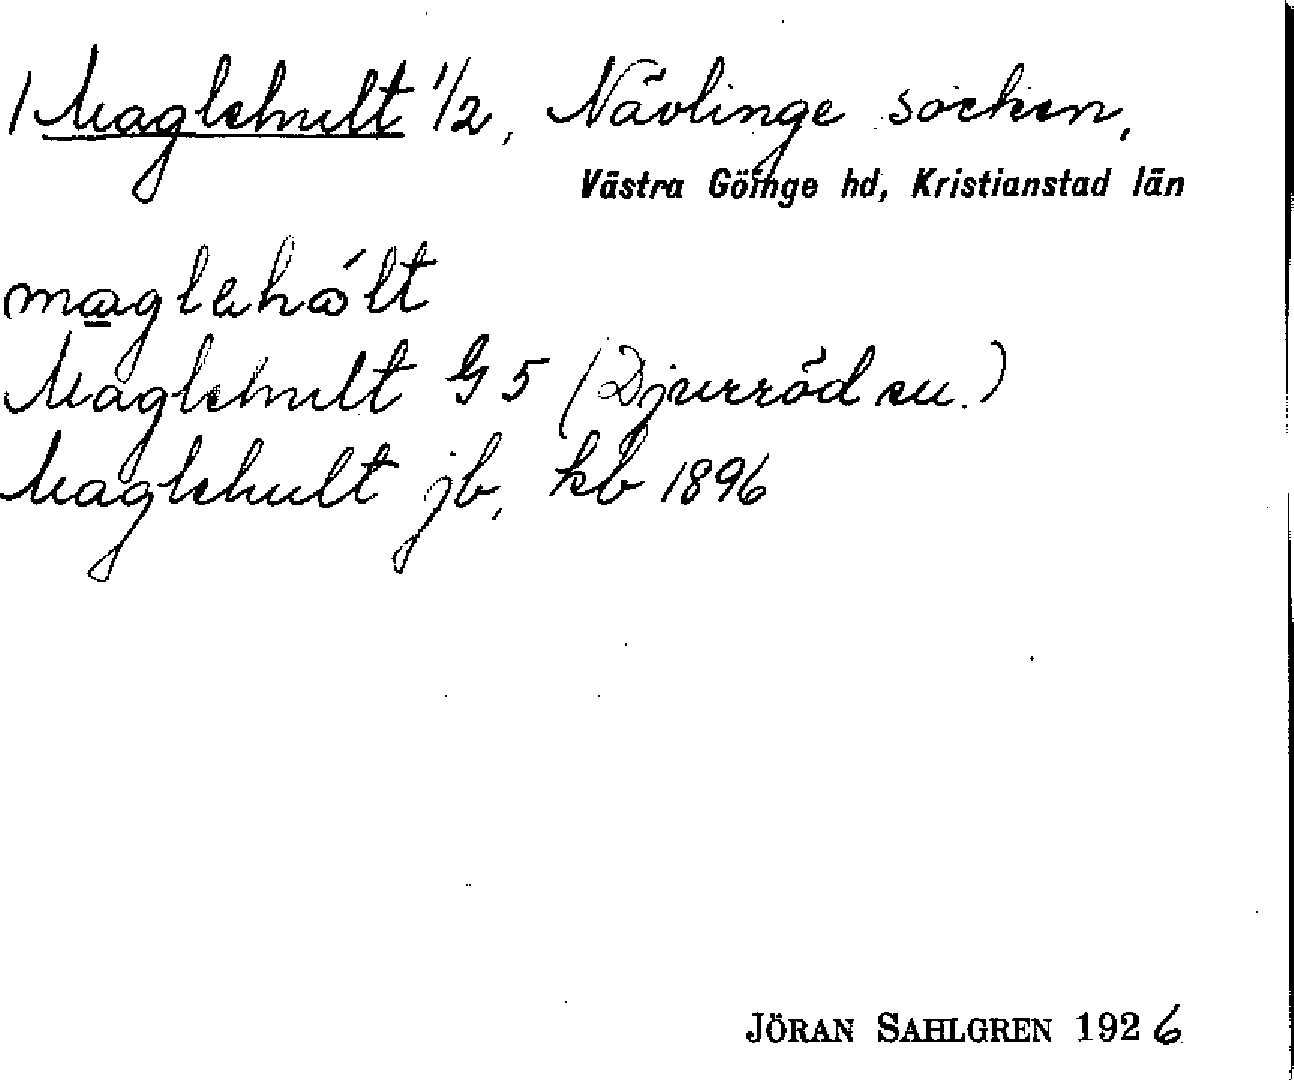 1 Maglehult 1/2, Nävlinge socken,
Västra Göinge hd, Kristianstad län
maglahålt
Maglehult G 5 (Djurröd sn.)
Maglehult jb, kb 1896
JÖRAN SAHLGREN 1926